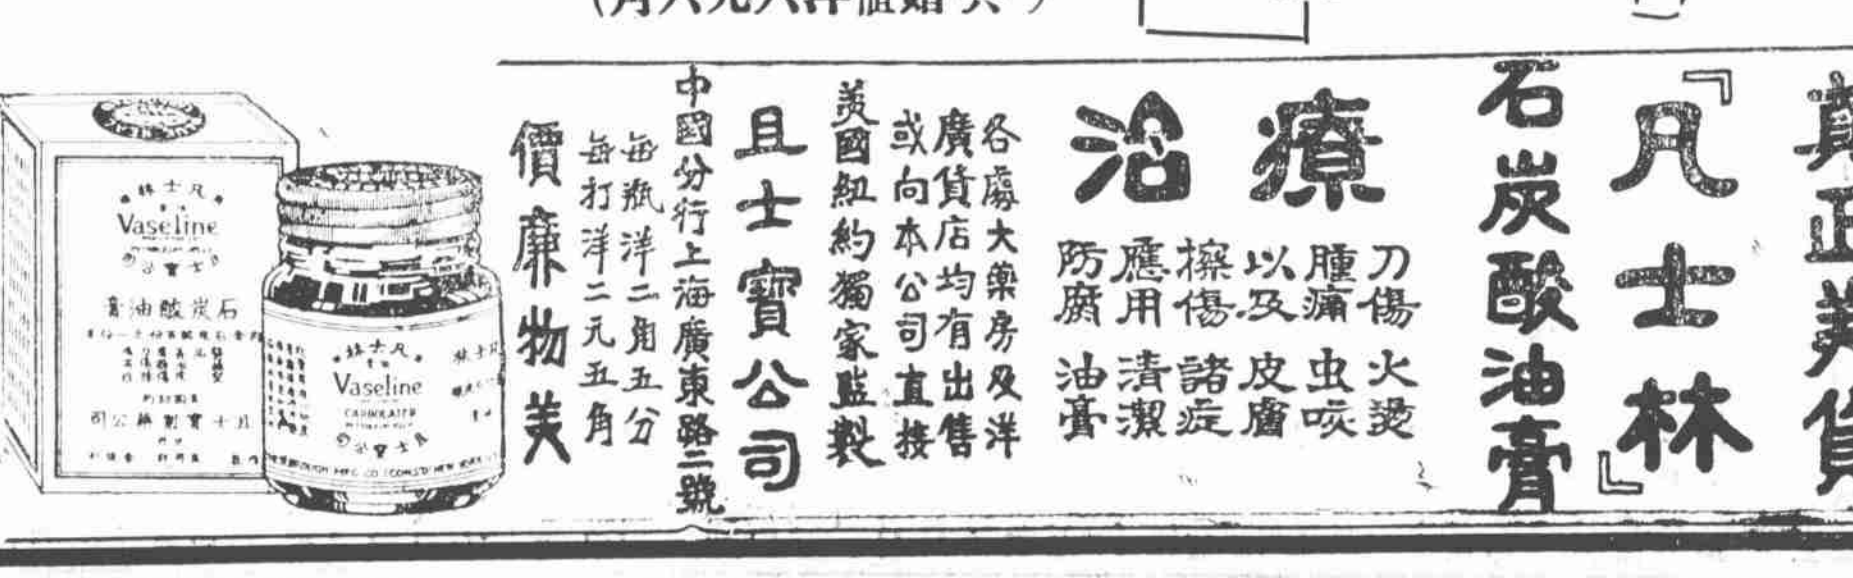 真正美貨
『凡士林』
石炭酸油膏
療治
刀傷 火燙
腫痛 虫咬
以及 皮膚
擦傷 諸症
應用 清潔
防腐 油膏
各處大藥房及洋
廣貨店均有出售
或向本公司直接
美國紐約獨家監製
且士寶公司
中國分行上海廣東路三號
每瓶洋二角五分
每打洋二元五角
價廉物美
林士凡
Vaseline
膏油酸炭石
司公藥製寶士且
林士凡
Vaseline
CARBOLATED